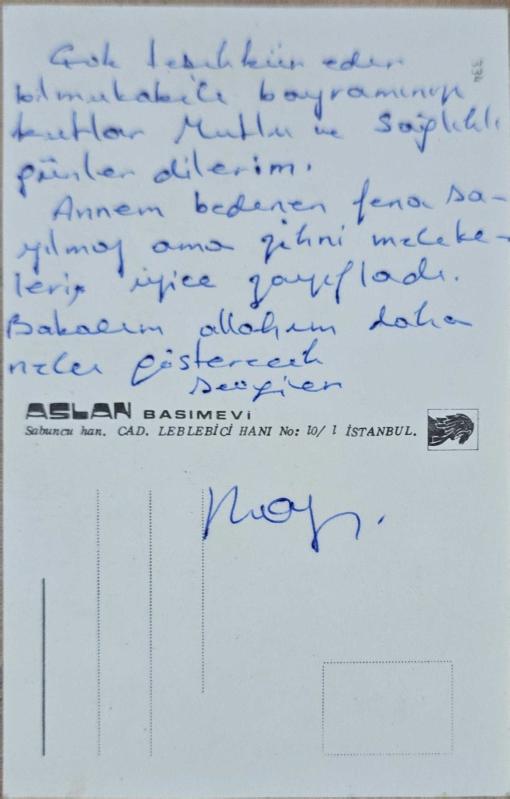 Çok teşekkür eder
bilmukabele bayramınızı
kutlar Mutlu ve Sağlıklı
günler dilerim.
Annem bedenen fena sa-
yılmaz ama zihni meleke-
leri iyice zayıfladı.
Bakalım allahım daha
neler gösterecek
sevgiler
ASLAN BASIMEVİ
Sabuncu han. CAD. LEBLEBİCİ HANI No: 10/1 İSTANBUL.